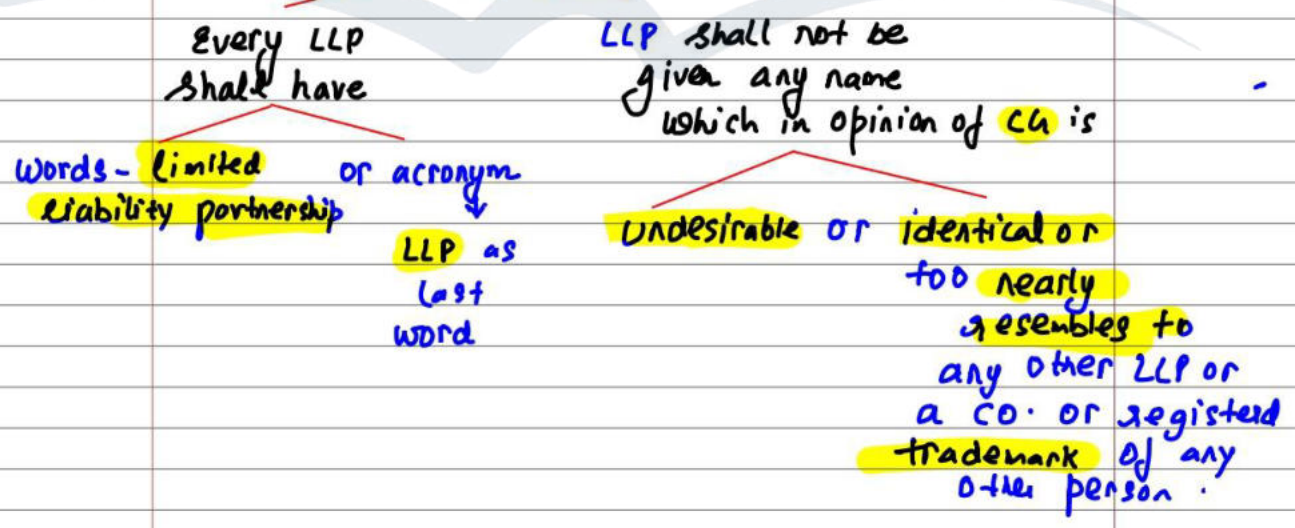 Every LLP
shall have
words - limited
liability partnership
or acronym
LLP as
last
word
LLP shall not be
given any name
which in opinion of CG is
undesirable or identical or
too nearly
resembles to
any other LLP or
a co. or registerd
trademark of any
other person.